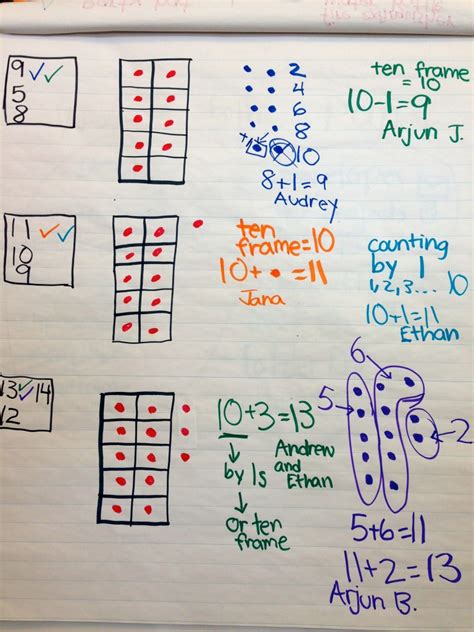 9 ✓✓
5
8
2
4
6
8
+1 10
8+1=9
Audrey
ten frame
=10
10-1=9
Arjun J.
11 ✓✓
10
9
ten
frame=10
10+•=11
Jana
counting
by 1
1,2,3... 10
10+1=11
Ethan
13✓✓14
12
10+3=13
by 1s
or ten
frame
Andrew
and
Ethan
6
5
2
5+6=11
11+2=13
Arjun B.